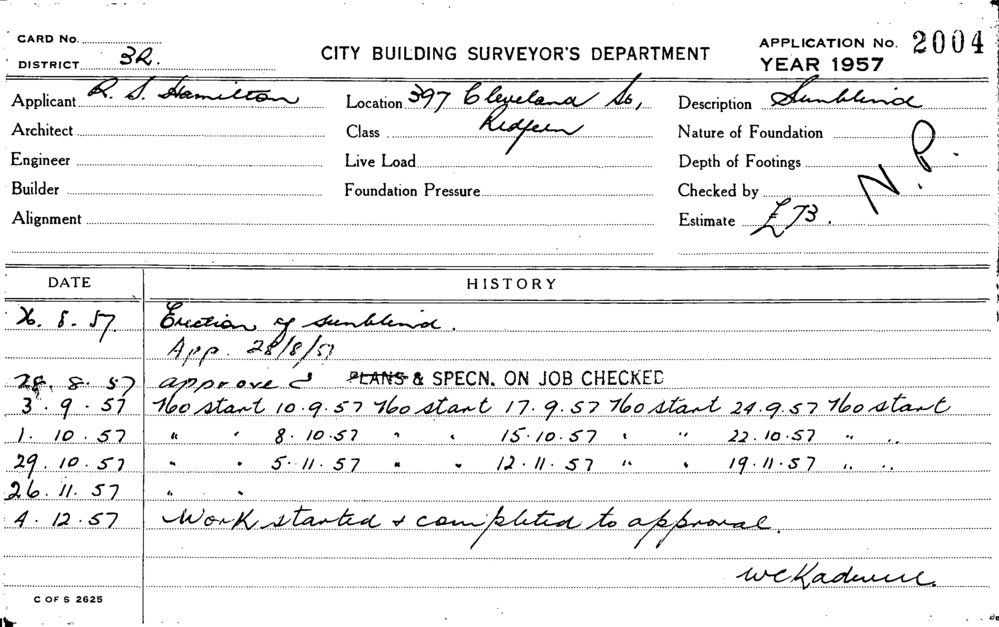 CARD No.
DISTRICT 32.
CITY BUILDING SURVEYOR'S DEPARTMENT
APPLICATION No. 2004
YEAR 1957
Applicant R. S. Hamilton
Location 397 Cleveland St,
Description Sunblind
Architect
Class Redfern
Nature of Foundation
Engineer
Live Load
Depth of Footings
Builder
Foundation Pressure
Checked by
N.P.
Alignment
Estimate £73.
DATE HISTORY
26. 8. 57. Erection of sunblind.
App. 28/8/57
28. 8. 57 approved PLANS & SPECN. ON JOB CHECKED
3. 9. 57 No start 10.9.57 No start 17.9.57 No start 24.9.57 No start
1. 10. 57 " " 8.10.57 " " 15.10.57 " " 22.10.57 " "
29. 10. 57 " " 5.11.57 " " 12.11.57 " " 19.11.57 " "
26. 11. 57 " "
4. 12. 57 Work started & completed to approval.
C OF S 2625